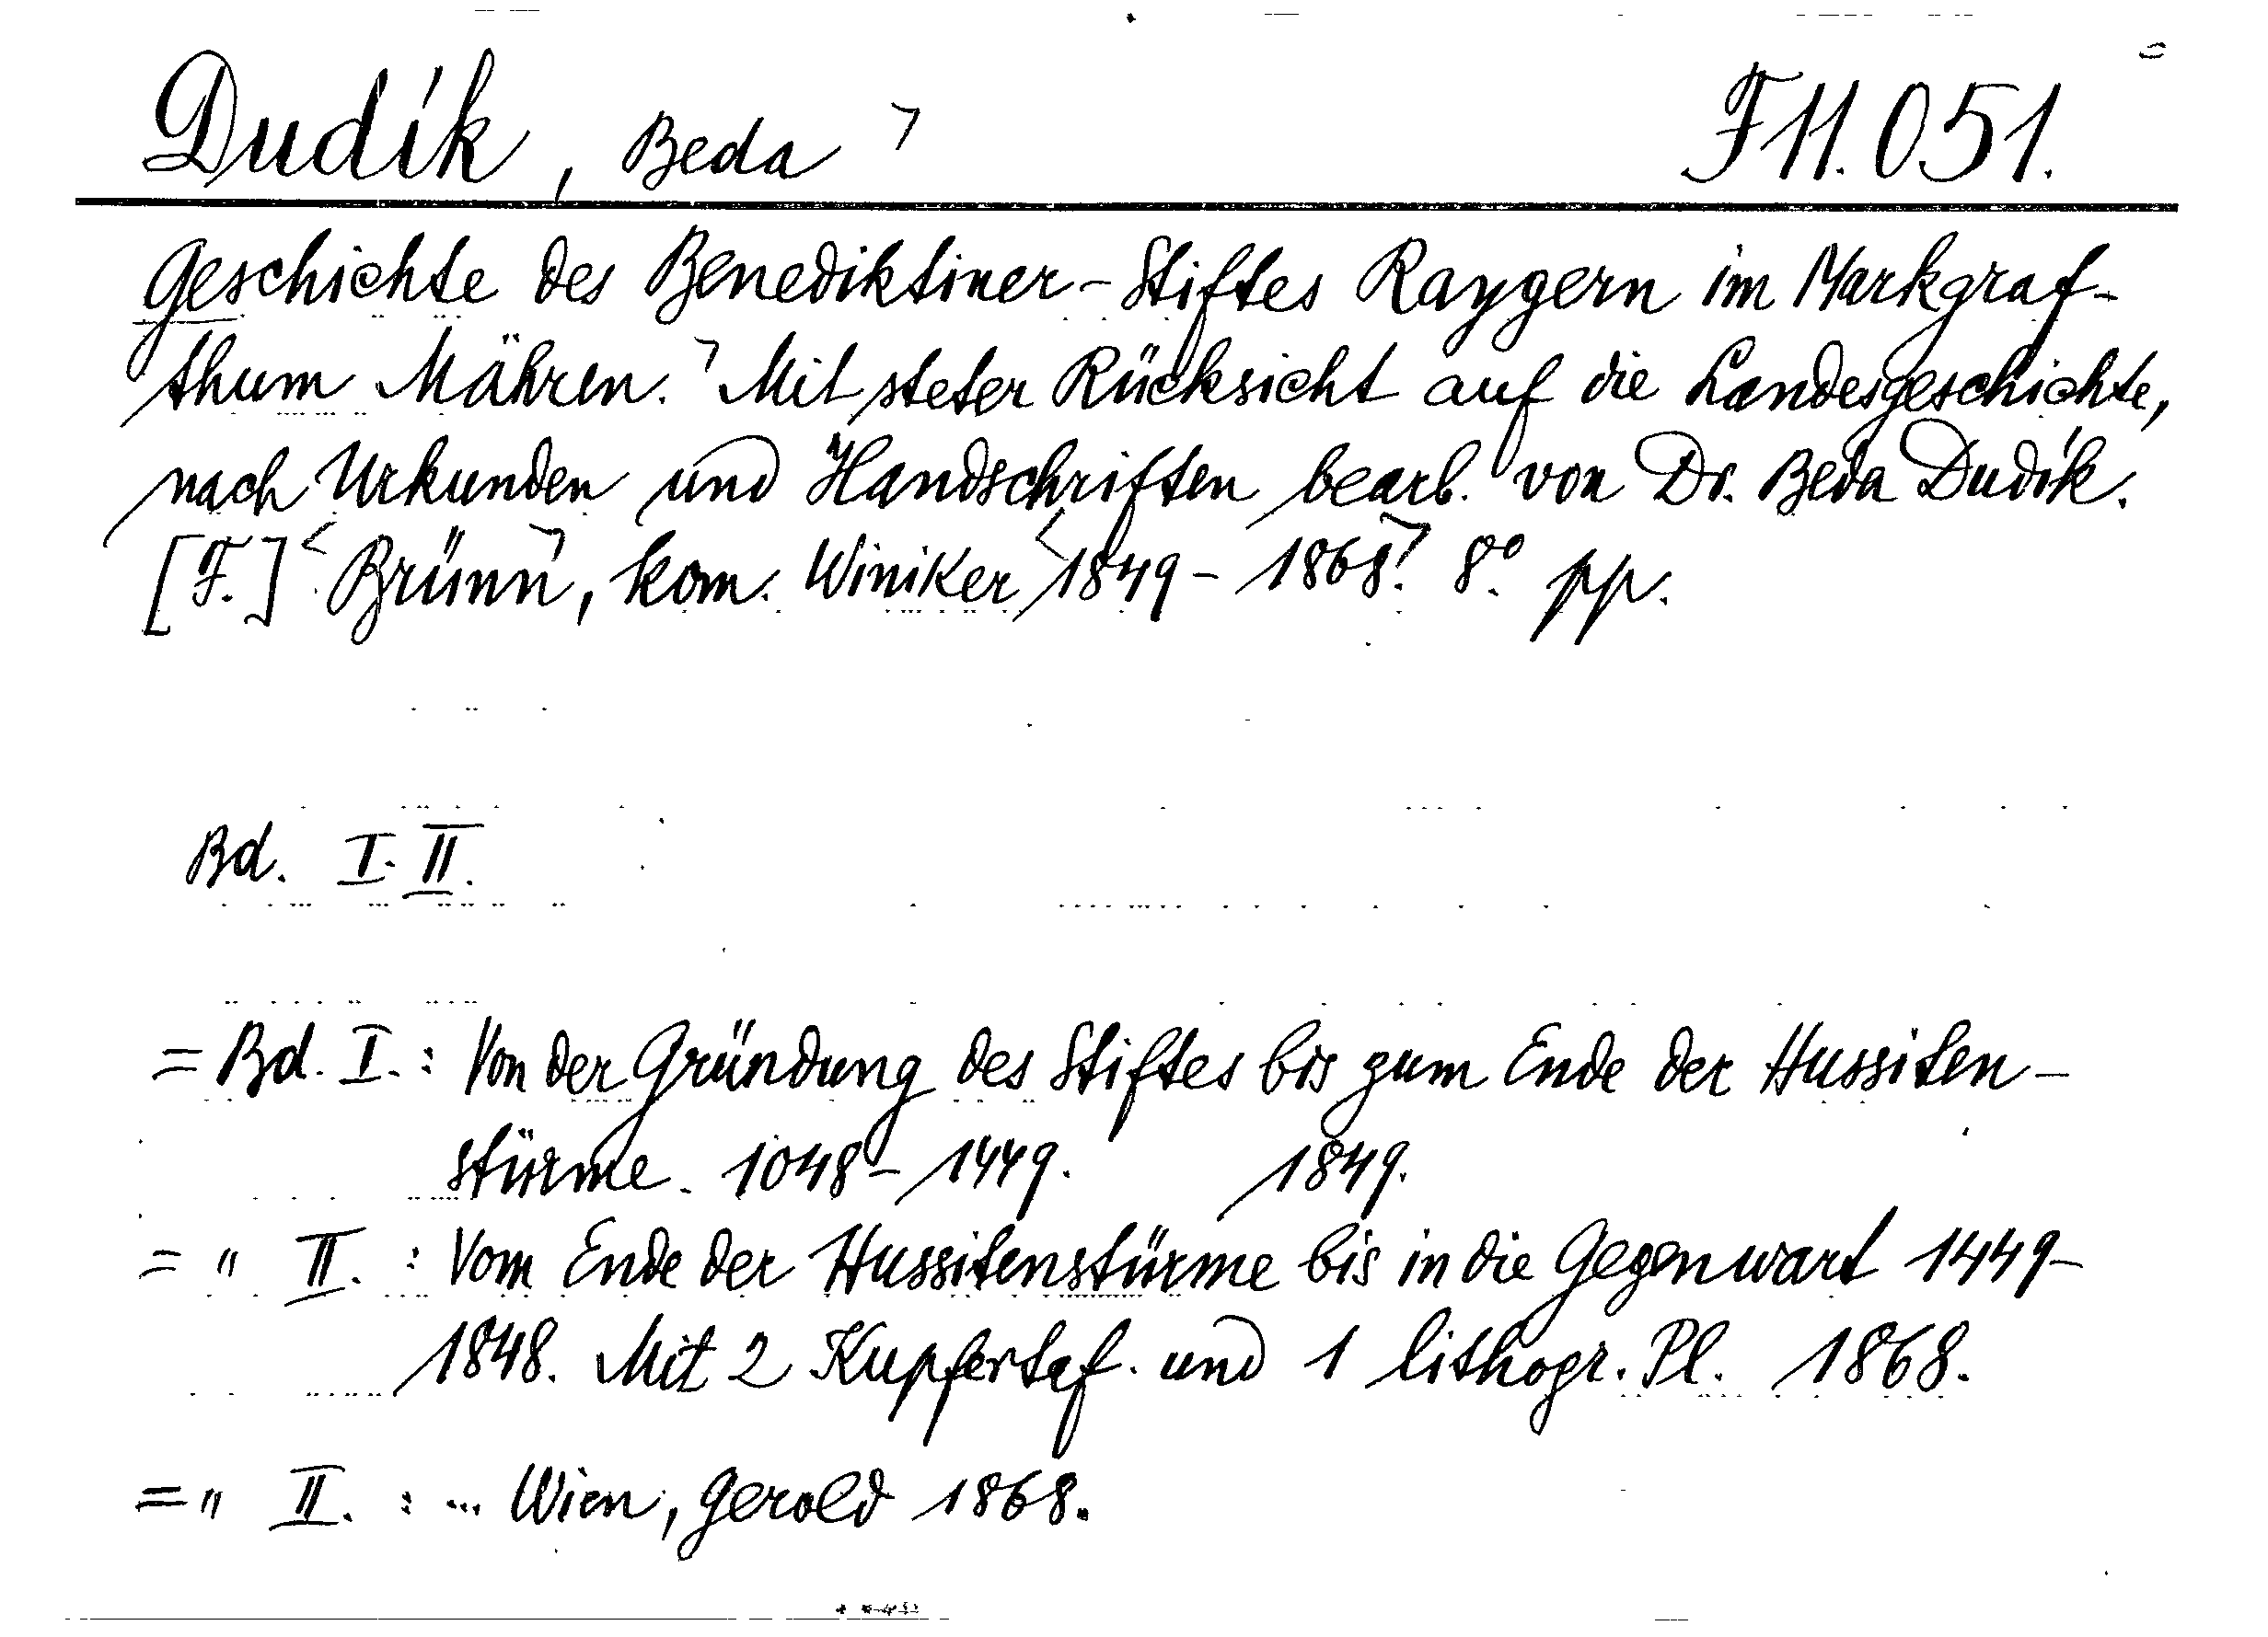 Dudík, Beda ﹁ F 11.051.
Geschichte des Benediktiner-Stiftes Raygern im Markgraf-
thum Mähren. ﹁ Mit steter Rücksicht auf die Landesgeschichte,
nach Urkunden und Handschriften bearb. von Dr. Beda Dudík.
[F.] < Brünn ﹁, kom. Winiker < 1849-1868. ﹁ 8° pp.
Bd. I-II.
= Bd. I. : Von der Gründung des Stiftes bis zum Ende der Hussiten-
stürme. 1048-1449. 1849.
= " II. : Vom Ende der Hussitenstürme bis in die Gegenwart 1449-
1848. Mit 2 Kupfertaf. und 1 lithogr. Pl. 1868.
= " II. : ... Wien, Gerold 1868.